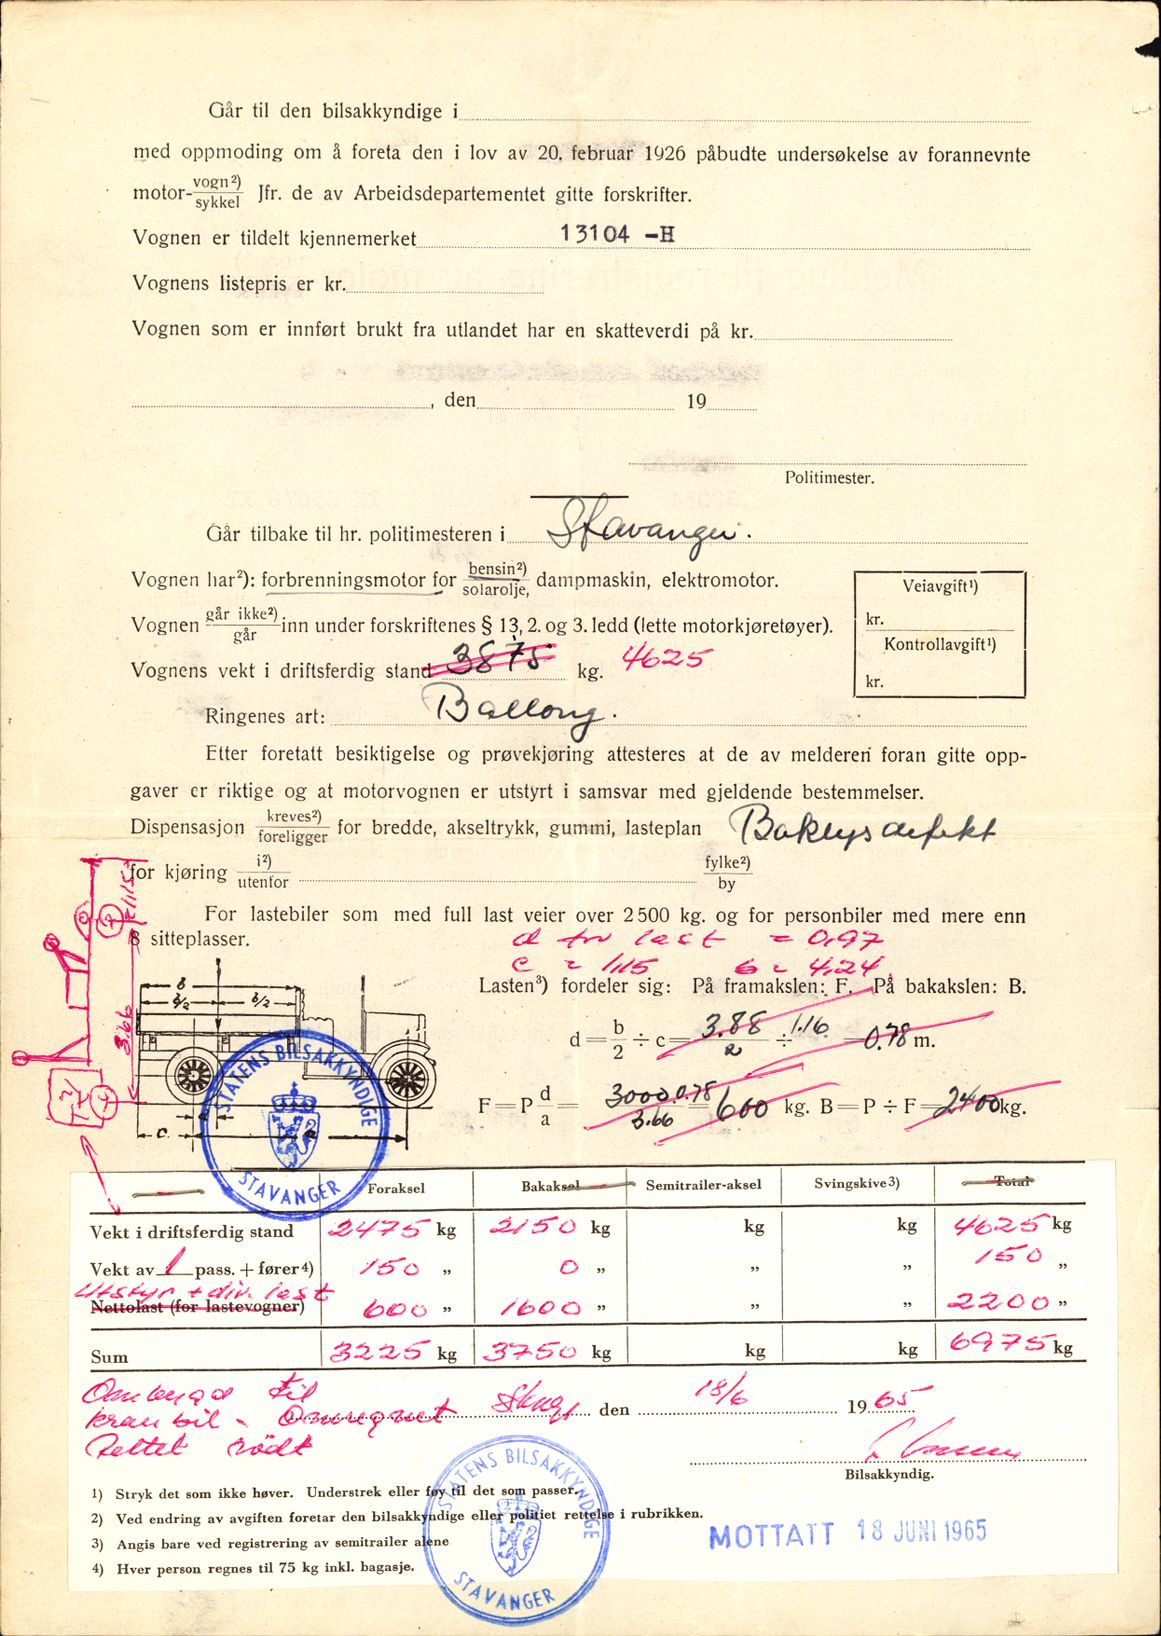 Går til den bilsakkyndige i
med oppmoding om å foreta den i lov av 20. februar 1926 påbudte undersøkelse av forannevnte
motor-vogn²)/sykkel Jfr. de av Arbeidsdepartementet gitte forskrifter.
Vognen er tildelt kjennemerket 13104 -H
Vognens listepris er kr.
Vognen som er innført brukt fra utlandet har en skatteverdi på kr.
, den 19
Politimester.
Går tilbake til hr. politimesteren i Stavanger.
Vognen har²): forbrenningsmotor for bensin²)/solarolje, dampmaskin, elektromotor.
Vognen går ikke²)/går inn under forskriftenes § 13, 2. og 3. ledd (lette motorkjøretøyer).
Vognens vekt i driftsferdig stand 3875 kg. 4625
Veiavgift¹)
kr.
Kontrollavgift¹)
kr.
Ringenes art: Ballong.
Etter foretatt besiktigelse og prøvekjøring attesteres at de av melderen foran gitte opp-
gaver er riktige og at motorvognen er utstyrt i samsvar med gjeldende bestemmelser.
Dispensasjon kreves²)/foreligger for bredde, akseltrykk, gummi, lasteplan Baklys defekt
for kjøring i²)/utenfor fylke²)/by
For lastebiler som med full last veier over 2500 kg. og for personbiler med mere enn
8 sitteplasser.
d for last = 0,97
c = 1,15 b = 4,24
Lasten³) fordeler sig: På framakslen: F. På bakakslen: B.
d = b/2 ÷ c = 3.88/2 ÷ 1.16 = 0.78 m.
F = P d/a = 3000.0.78/3.66 = 600 kg. B = P ÷ F = 2400 kg.
1,15
3.66
b
b/2 b/2
c d a
STATENS BILSAKKYNDIGE
STAVANGER
Foraksel Bakaksel Semitrailer-aksel Svingskive3) Total
Vekt i driftsferdig stand 2475 kg 2150 kg kg kg 4625 kg
Vekt av 1 pass. + fører4) 150 „ 0 „ „ „ 150 „
Utstyr + div. last
Nettolast (for lastevogner) 600 „ 1600 „ „ „ 2200 „
Sum 3225 kg 3750 kg kg kg 6975 kg
Ombygd til
kranbil - Omregnet
Rettet rødt
den 18/6 1965
Bilsakkyndig.
1) Stryk det som ikke høver. Understrek eller føy til det som passer.
2) Ved endring av avgiften foretar den bilsakkyndige eller politiet rettelse i rubrikken.
3) Angis bare ved registrering av semitrailer alene
4) Hver person regnes til 75 kg inkl. bagasje.
STATENS BILSAKKYNDIGE
STAVANGER
MOTTATT 18 JUNI 1965